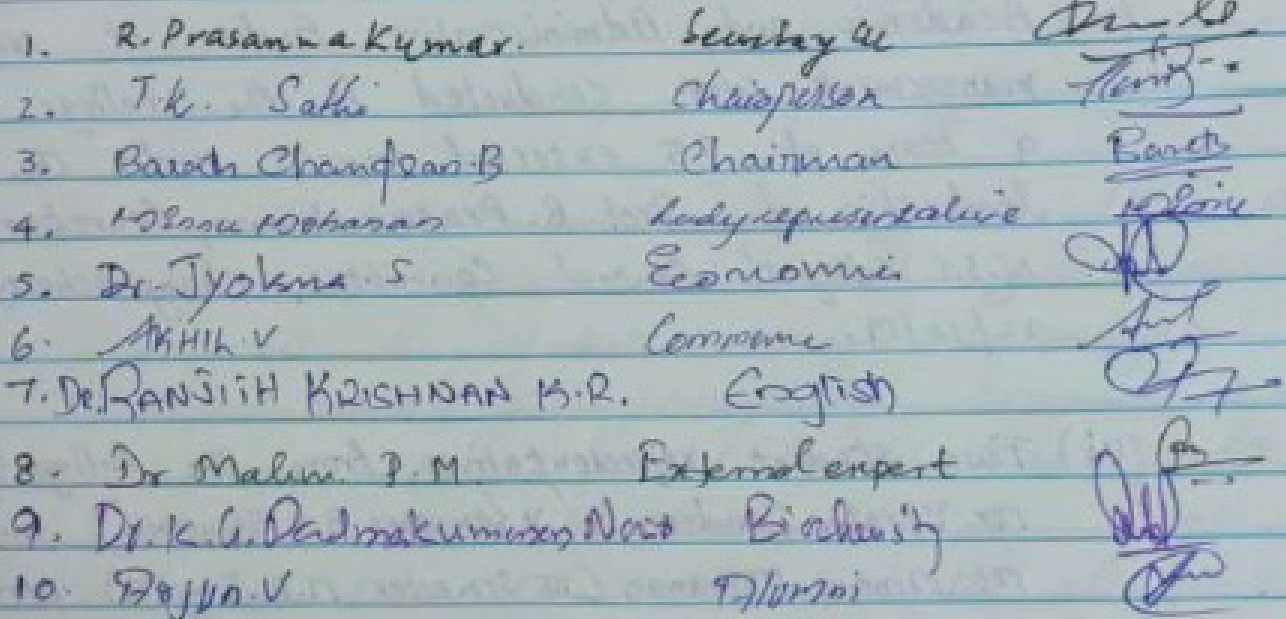 1. R. Prasanna Kumar. Secretary
2. T.K. Sathi Chairperson
3. Barath Chandran.B Chairman
4. Minnu Mohanan Lady representative
5. Dr. Jyotsna. S Economics
6. AKHIL.V Commerce
7. Dr. RANJITH KRISHNAN K.R. English
8. Dr Malini P.M. External expert
9. Dr. K.G. Padmakumaran Nair Biochemistry
10. Arjun.V Alumni